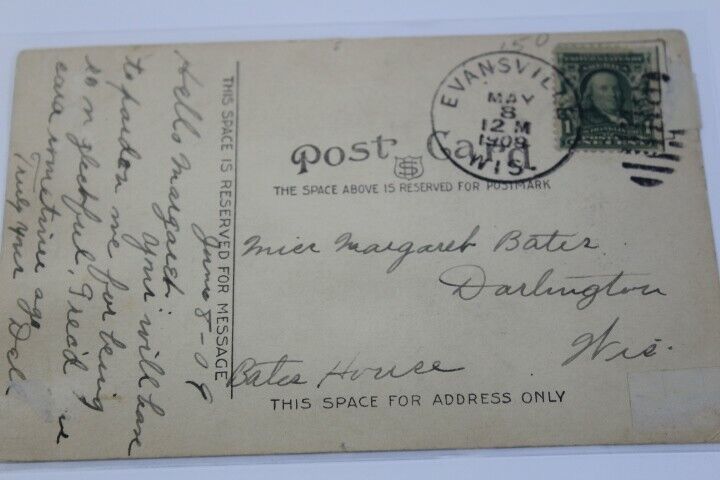 150
EVANSVILLE
MAY
8
12 M
1909
WIS.
Post Card
THE SPACE ABOVE IS RESERVED FOR POSTMARK
THIS SPACE IS RESERVED FOR MESSAGE
June 8-09
Hello Margaret: Your will have
to pardon me for being
so n glectful, I rec'd
card sometimes ago
Truly your Dell
Miss Margaret Bates.
Darlington
Wis.
Bates House
THIS SPACE FOR ADDRESS ONLY